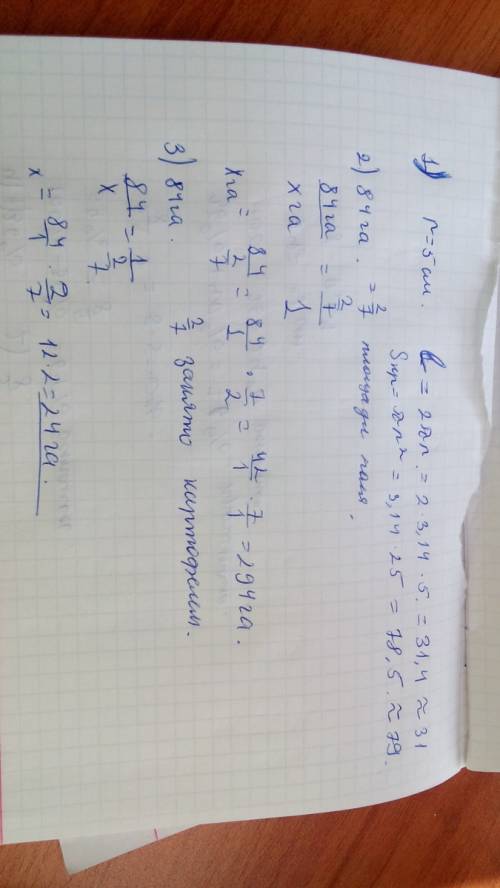 1) r=5см. C = 2πr. = 2·3,14·5. = 31,4 ≈ 31
Sкр= πr² = 3,14·25 = 78,5. ≈ 79.
2) 84га. = 2/7 площади поля.
84га/xга = 2/7/1
xга = 84/(2/7) = 84/1 · 7/2 = 42/1 · 7/1 = 294га.
3) 84га. 2/7 занято картофелем.
84/x = 1/(2/7)
x = 84/1 · 2/7 = 12·2=24га.